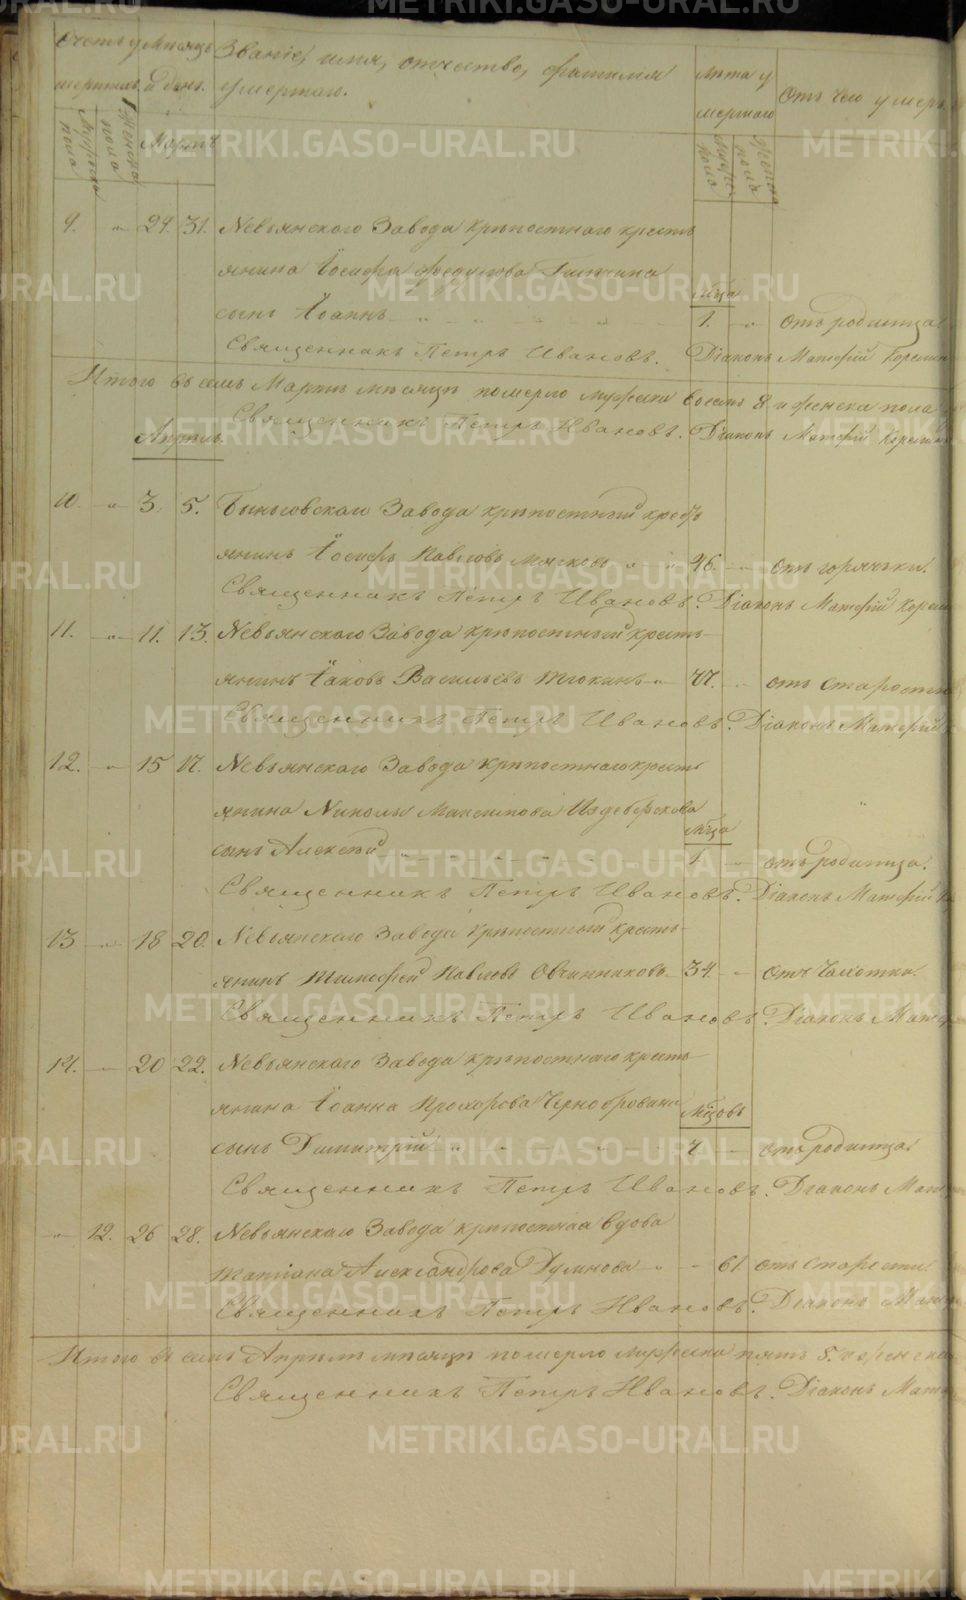 Счетъ у Мѣсяцъ Званіе, имя, отчество, фамилія Лѣта у Отъ чего умеръ
мершихъ и день. умершаго. мершаго
Мужеска пола Женска пола Мартъ Мужес пола Женска пола
9. " 29. 31. Невьянскаго Завода крѣпостнаго кресть
янина Іосифа Федулова
сынъ Іоаннъ мѣсца 1. " отъ родимца.
Священникъ Петръ Ивановъ. Діаконъ Матфій
Итого въ семъ Мартѣ мѣсяцѣ померло мужеска восемь 8 и женска пола
Священникъ Петръ Ивановъ. Діаконъ Матфій
Апрѣль.
10. " 3. 5. Быньговскаго Завода крѣпостный кресть
янинъ Іосифъ Павловъ Мягковъ " " 46. отъ горячьки.
Священникъ Петръ Ивановъ. Діаконъ Матфій
11. " 11. 13. Невьянскаго Завода крѣпостный кресть
янинъ Іаковъ Васильевъ " 77. " отъ старости
Священникъ Петръ Ивановъ. Діаконъ Матфій
12. " 15 17. Невьянскаго Завода крѣпостнаго кресть
янина Николы Максимова
сынъ Алексѣй мѣсца 1 " отъ родимца.
Священникъ Петръ Ивановъ. Діаконъ Матфій
13 " 18 20. Невьянскаго Завода крѣпостный кресть
янинъ Тимофей Павловъ Овчинниковъ 34. " отъ чахотки.
Священникъ Петръ Ивановъ. Діаконъ Матф
14. 20 22. Невьянскаго Завода крѣпостнаго кресть
янина Іоанна Прохорова Чернобровина
сынъ Димитрій мѣсцовъ отъ родимца.
Священникъ Петръ Ивановъ. Діаконъ Мат
" 12. 26 28. Невьянскаго Завода крѣпостная вдова
Татіана Александрова Думнова " 61 отъ старости.
Священникъ Петръ Ивановъ. Діаконъ Мат
Итого въ семъ Апрѣлѣ мѣсяцѣ померло мужеска пять 5. и женска
Священникъ Петръ Ивановъ. Діаконъ Мат
METRIKI.GASO-URAL.RU